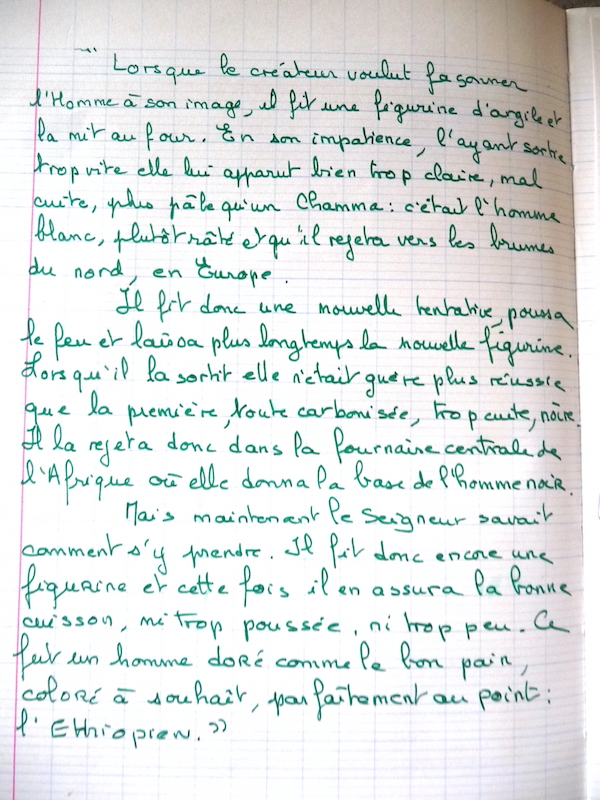 " Lorsque le créateur voulut façonner
l'Homme à son image, il fit une figurine d'argile et
la mit au four. En son impatience, l'ayant sortie
trop vite elle lui apparut bien trop claire, mal
cuite, plus pâle qu'un Chamma : c'était l'homme
blanc, plutôt râté et qu'il rejeta vers les brumes
du nord, en Europe.
Il fit donc une nouvelle tentative, poussa
le feu et laissa plus longtemps la nouvelle figurine.
Lorsqu'il la sortit elle n'était guère plus réussie
que la première, toute carbonisée, trop cuite, noire.
Il la rejeta donc dans la fournaise centrale de
l'Afrique où elle donna la base de l'homme noir.
Mais maintenant le Seigneur savait
comment s'y prendre. Il fit donc encore une
figurine et cette fois il en assura la bonne
cuisson, ni trop poussée, ni trop peu. Ce
fut un homme doré comme le bon pain,
coloré à souhait, parfaitement au point :
l'Ethiopien. »